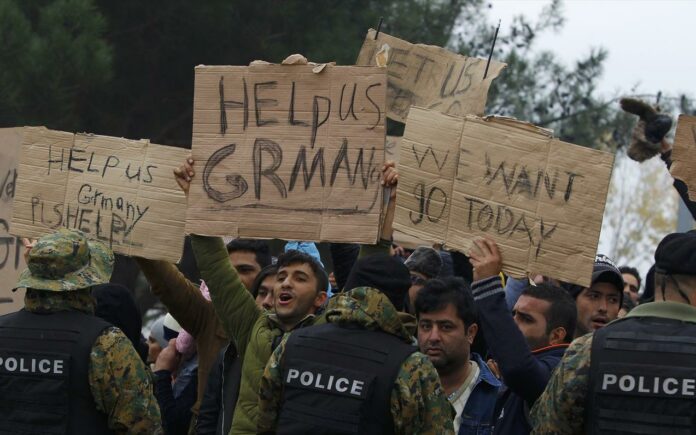 HELP US
Grmany
PUSHELP
HELP US
GRMANY
ET US
WE WANT
gO TODAY
POLICE
POLICE
POLICE